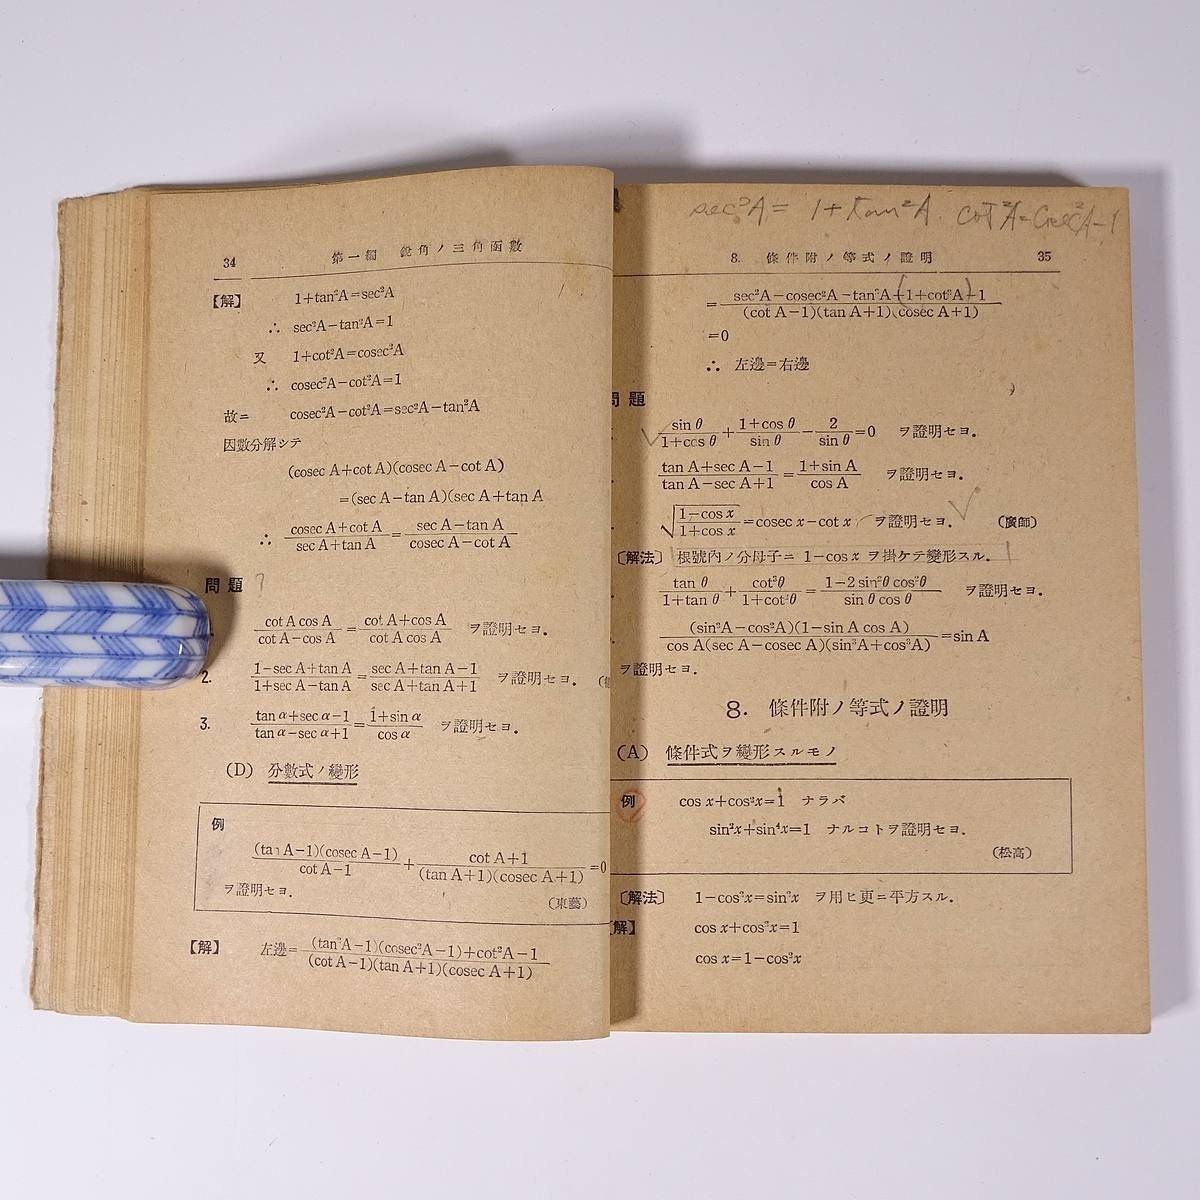 34 第一編 銳角ノ三角函數
【解】 1+tan²A=sec²A
∴ sec²A−tan²A=1
又 1+cot²A=cosec²A
∴ cosec²A−cot²A=1
故ニ cosec²A−cot²A=sec²A−tan²A
因數分解シテ
(cosec A+cot A)(cosec A−cot A)
=(sec A−tan A)(sec A+tan A
∴ (cosec A+cot A)/(sec A+tan A)=(sec A−tan A)/(cosec A−cot A)
問題
(cot A cos A)/(cot A−cos A)=(cot A+cos A)/(cot A cos A) ヲ證明セヨ.
2. (1−sec A+tan A)/(1+sec A−tan A)=(sec A+tan A−1)/(sec A+tan A+1) ヲ證明セヨ.
3. (tan α+sec α−1)/(tan α−sec α+1)=(1+sin α)/(cos α) ヲ證明セヨ.
(D) 分數式ノ變形
例
((tan A−1)(cosec A−1))/(cot A−1)+(cot A+1)/((tan A+1)(cosec A+1))=0
ヲ證明セヨ. (東藝)
【解】 左邊=((tan²A−1)(cosec²A−1)+cot²A−1)/((cot A−1)(tan A+1)(cosec A+1))
sec²A= 1+tan²A. cot²A=Cosec²A−1
8. 條件附ノ等式ノ證明 35
=(sec²A−cosec²A−tan²A+(1+cot²A)−1)/((cot A−1)(tan A+1)(cosec A+1))
=0
∴ 左邊=右邊
問題
(sin θ)/(1+cos θ)+(1+cos θ)/(sin θ)−2/(sin θ)=0 ヲ證明セヨ.
(tan A+sec A−1)/(tan A−sec A+1)=(1+sin A)/(cos A) ヲ證明セヨ.
√((1−cos x)/(1+cos x))=cosec x−cot x ヲ證明セヨ. (廣師)
〔解法〕 根號內ノ分母子ニ 1−cos x ヲ掛ケテ變形スル.
(tan θ)/(1+tan θ)+(cot²θ)/(1+cot²θ)=(1−2 sin²θ cos²θ)/(sin θ cos θ) ヲ證明セヨ.
((sin²A−cos²A)(1−sin A cos A))/(cos A(sec A−cosec A)(sin³A+cos³A))=sin A
ヲ證明セヨ.
8. 條件附ノ等式ノ證明
(A) 條件式ヲ變形スルモノ
例 cos x+cos²x=1 ナラバ
sin²x+sin⁴x=1 ナルコトヲ證明セヨ.
(松高)
〔解法〕 1−cos²x=sin²x ヲ用ヒ更ニ平方スル.
【解】 cos x+cos²x=1
cos x=1−cos²x